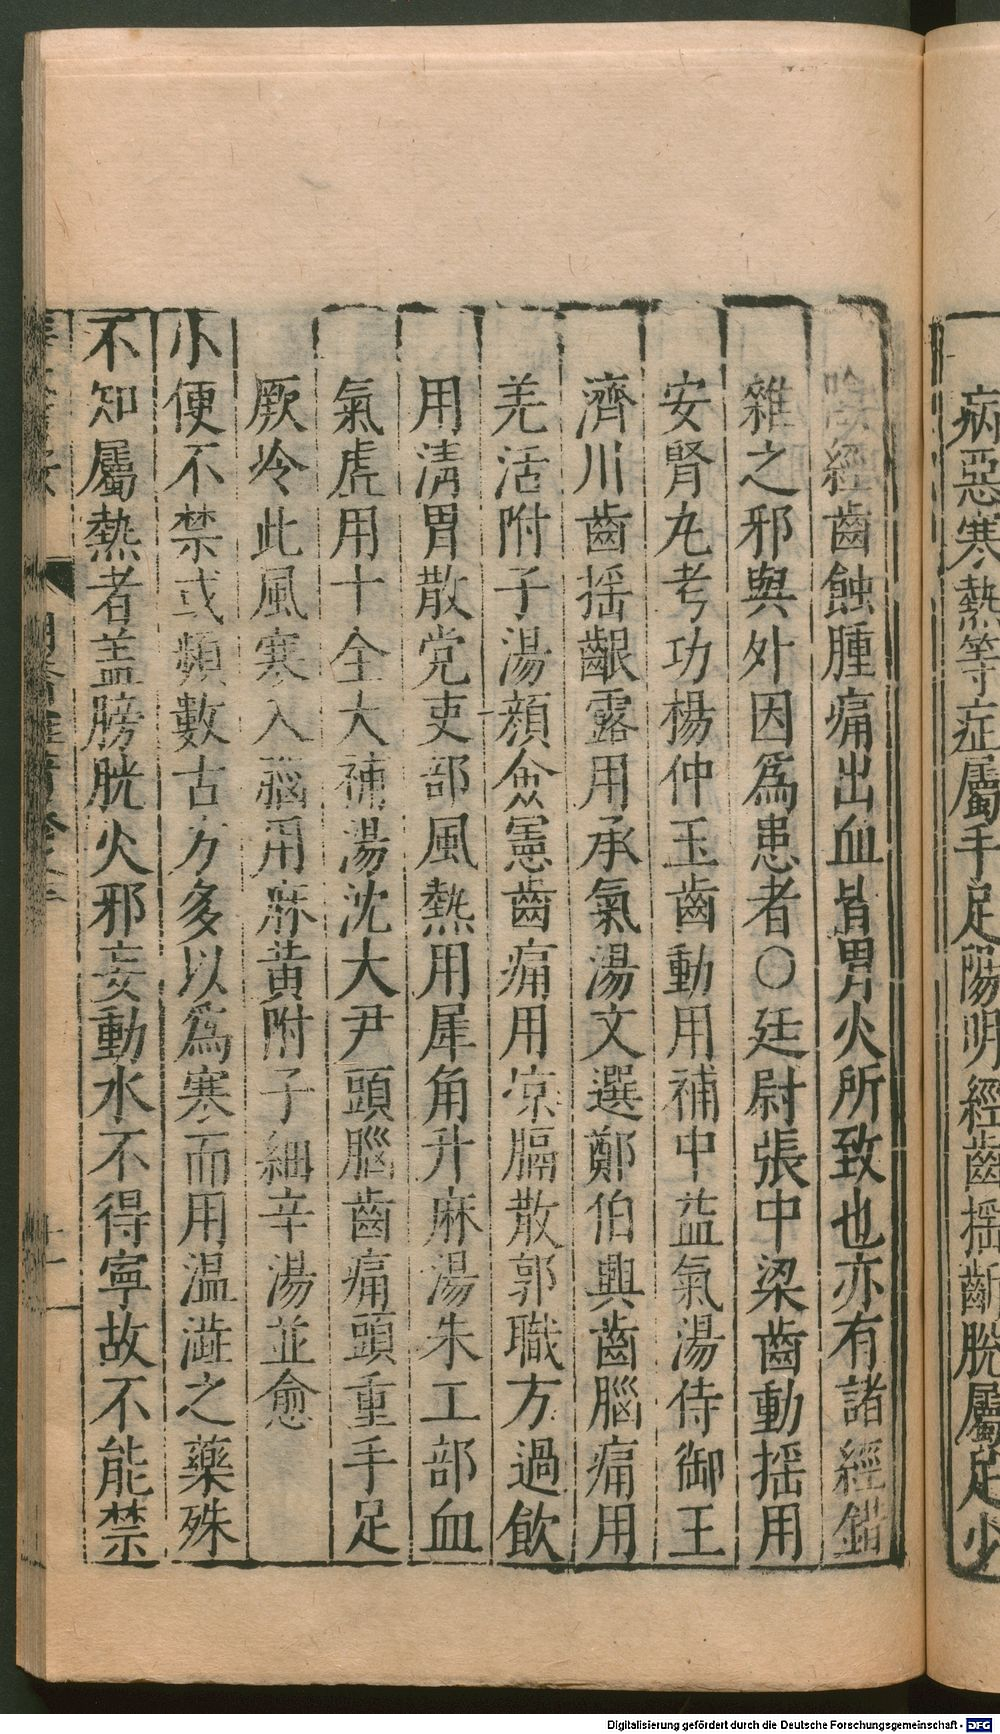 病惡寒熱等症屬手足陽明經齒揺齗脫屬足少
陰經齒蝕腫痛出血皆胃火所致也亦有諸經錯
雜之邪與外因爲患者○廷尉張中梁齒動揺用
安腎丸考功楊仲玉齒動用補中益氣湯侍御王
濟川齒揺齦露用承氣湯文選鄭伯興齒腦痛用
羌活附子湯顏僉憲齒痛用凉膈散郭職方過飲
用清胃散党吏部風熱用犀角升麻湯朱工部血
氣虛用十全大補湯沈大尹頭腦齒痛頭重手足
厥冷此風寒入腦用麻黄附子細辛湯並愈
小便不禁或頻數古方多以爲寒而用温澁之藥殊
不知屬熱者盖膀胱火邪妄動水不得寧故不能禁
明醫雜著卷之
十一
Digitalisierung gefördert durch die Deutsche Forschungsgemeinschaft - DFG